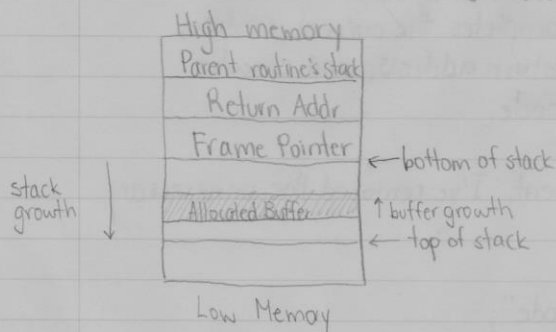 High memory
Parent routine's stack
Return Addr
Frame Pointer
← bottom of stack
stack growth
Allocated Buffer
↑ buffer growth
← top of stack
Low Memory